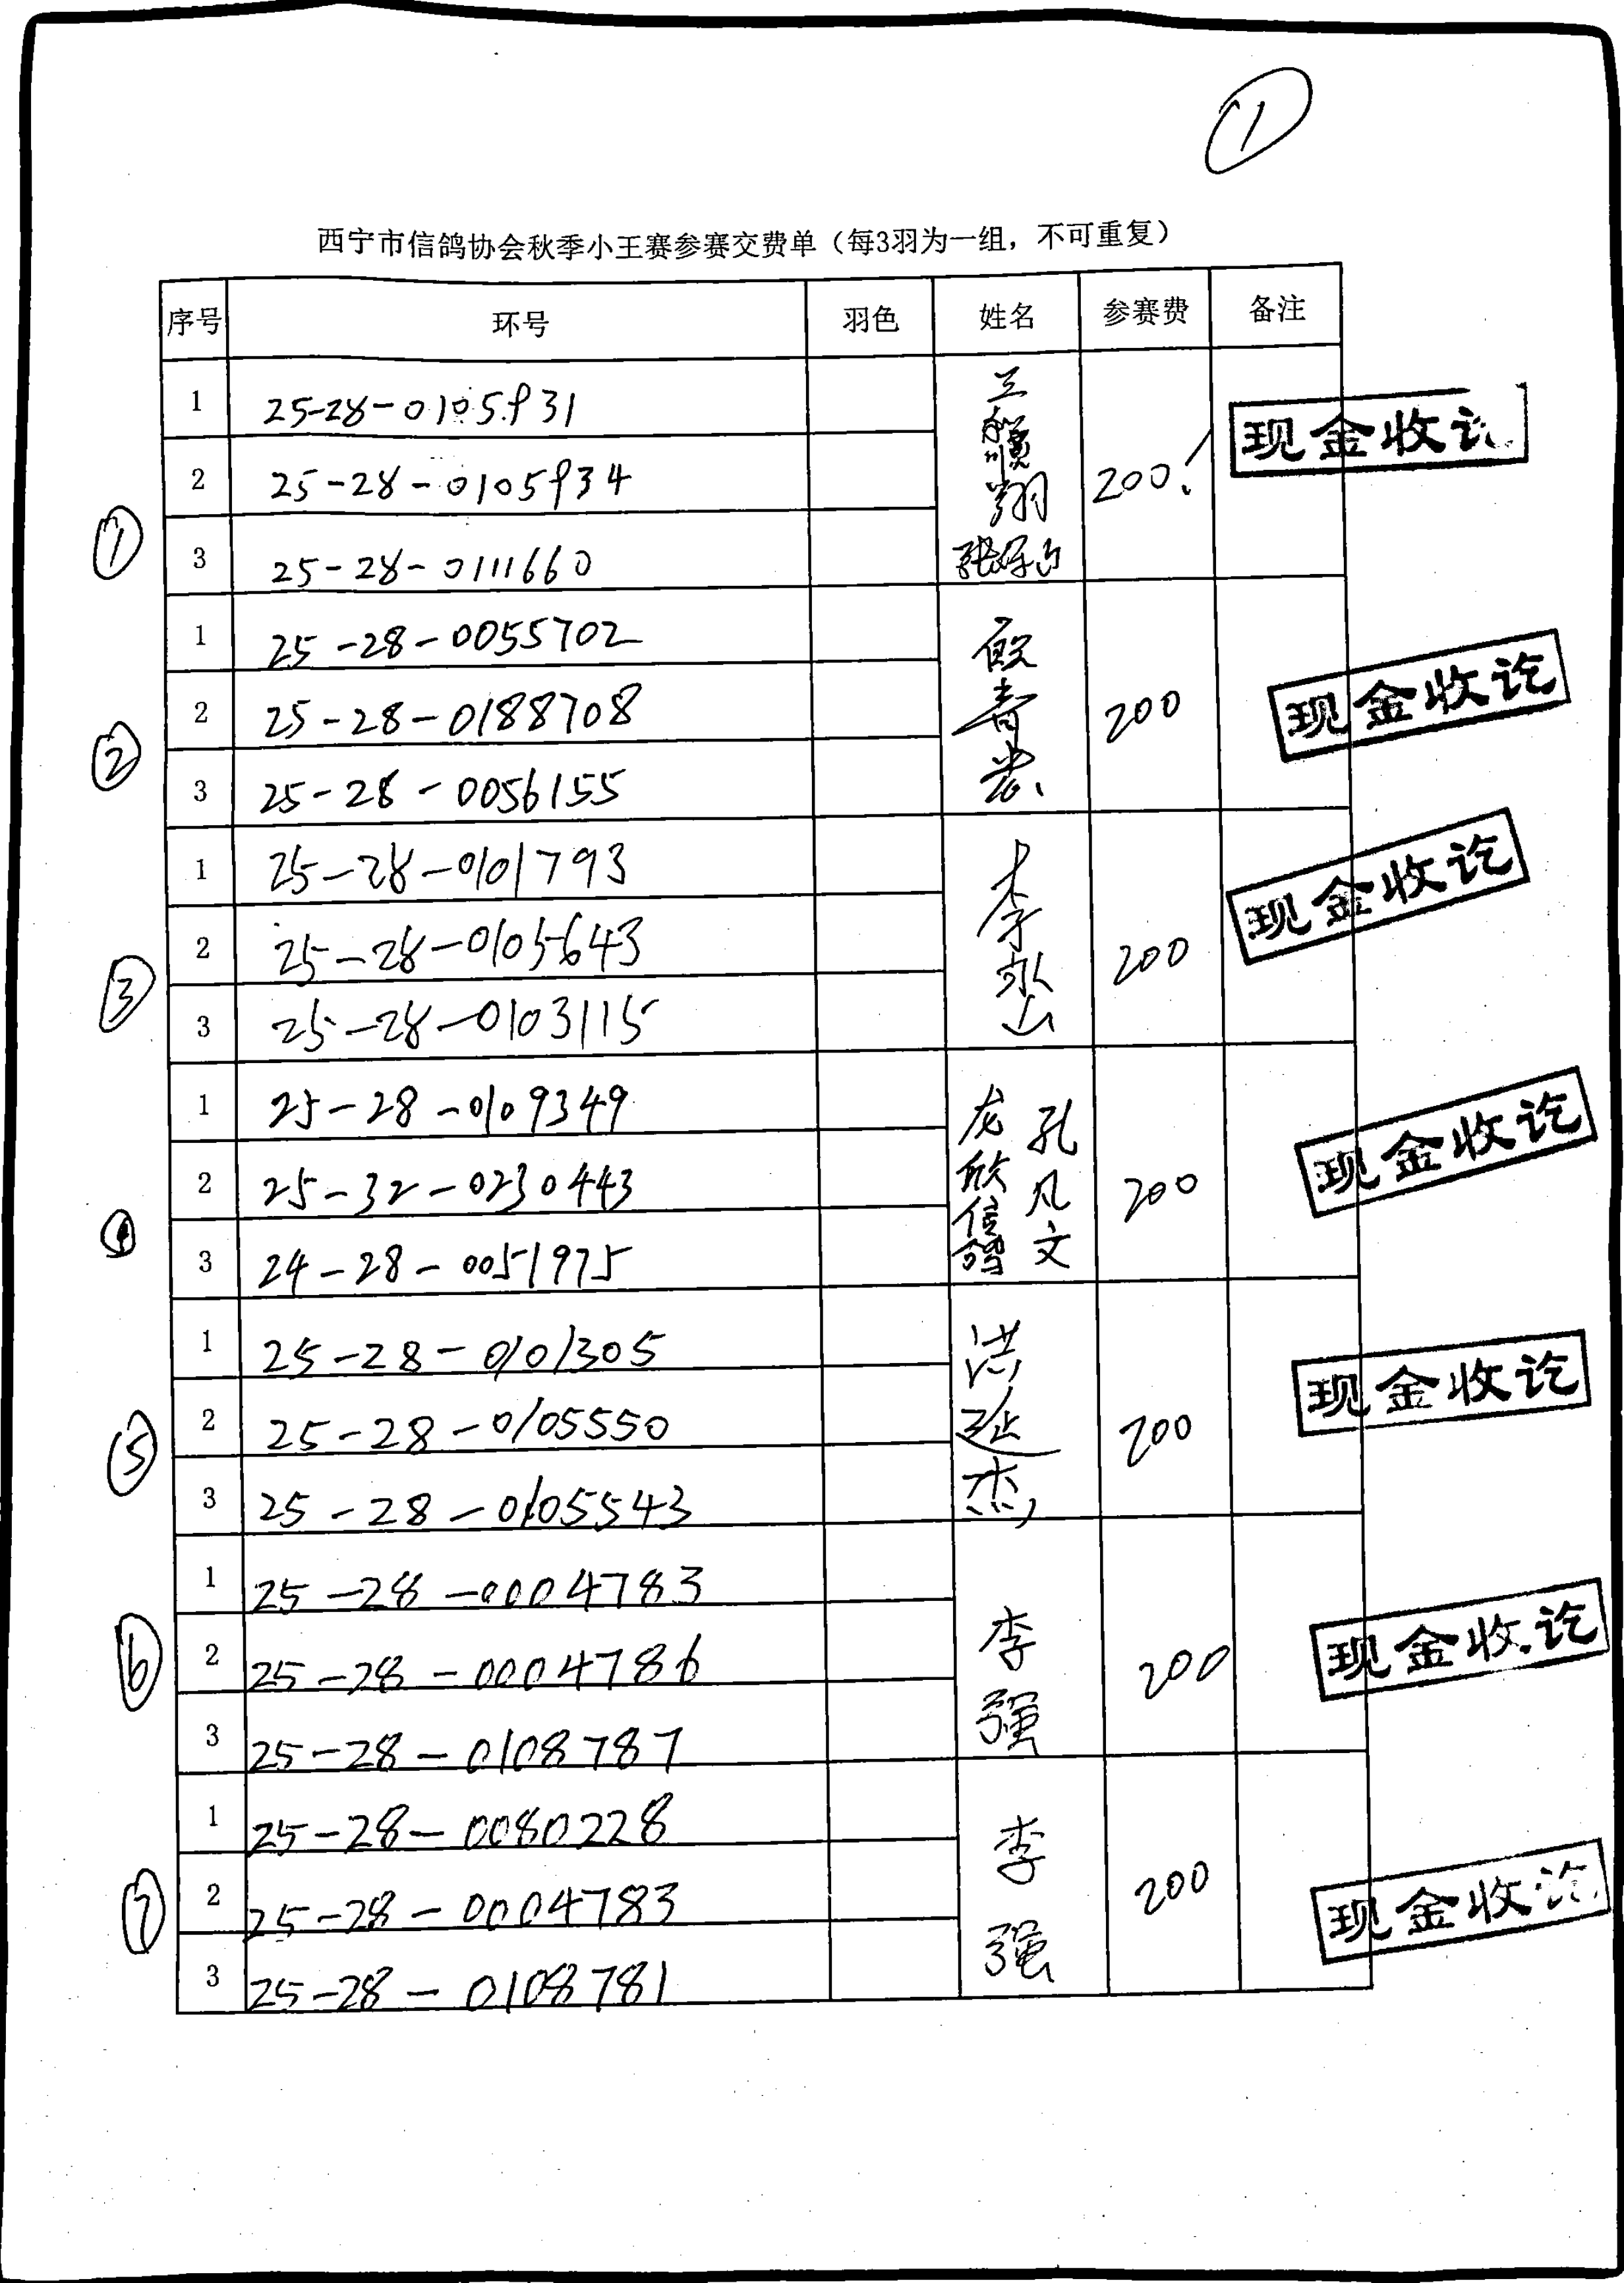 ①
西宁市信鸽协会秋季小王赛参赛交费单（每3羽为一组，不可重复）
序号 环号 羽色 姓名 参赛费 备注
① 
1 25-28-0105931
2 25-28-0105934
3 25-28-0111660
翔 200! 现金收讫
②
1 25-28-0055702
2 25-28-0188708
3 25-28-0056155
殷青 200 现金收讫
③
1 25-28-0101793
2 25-28-0105643
3 25-28-0103115
李永山 200 现金收讫
④
1 25-28-0109349
2 25-32-0230443
3 24-28-0051975
龙欣信鸽 孔凡文 200 现金收讫
⑤
1 25-28-0101305
2 25-28-0105550
3 25-28-0105543
洪延杰 200 现金收讫
⑥
1 25-28-0004783
2 25-28-0004786
3 25-28-0108787
李强 200 现金收讫
⑦
1 25-28-0080228
2 25-28-0004783
3 25-28-0108781
李强 200 现金收讫